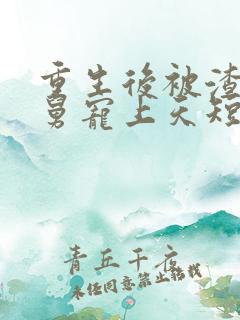 重生後被渣
舅寵上天短
青丘千夜
未经同意禁止转载